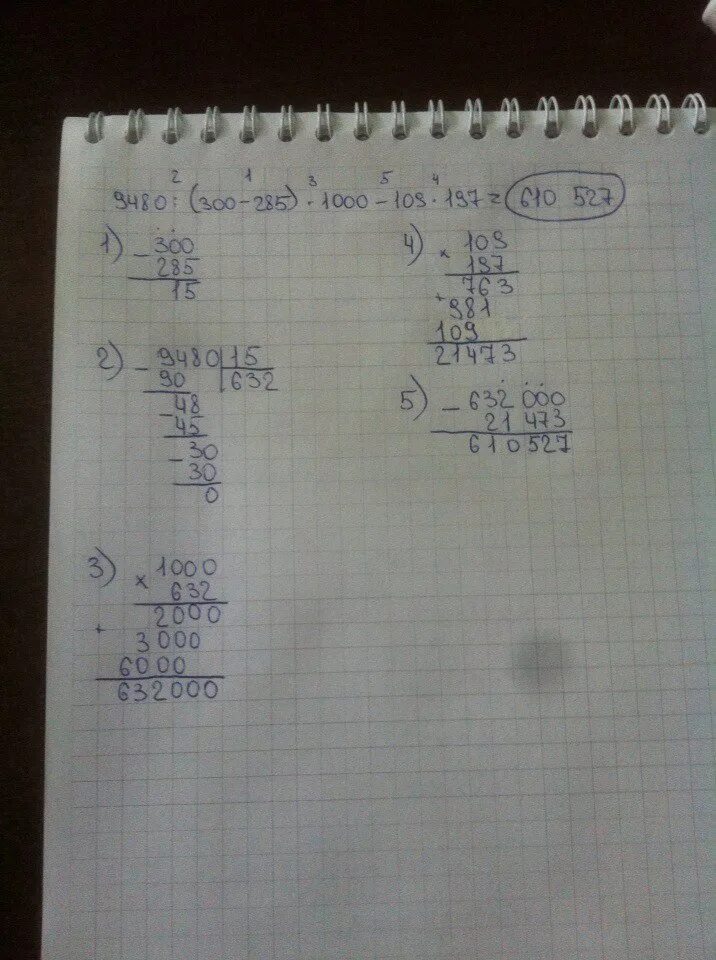 2 1 3 5 4
9480 : (300 - 285) · 1000 - 109 · 197 = 610 527
1) - 300
285
15
2) - 9480 | 15
90 632
- 48
45
- 30
30
0
3) × 1000
632
2000
+ 3000
6000
632000
4) × 109
197
763
+ 981
109
21473
5) - 632 000
21 473
610527